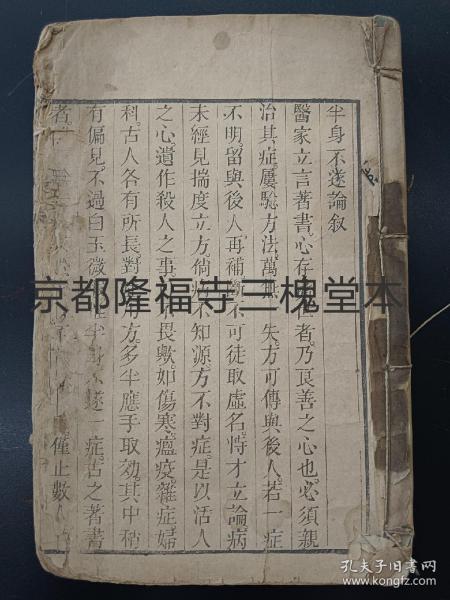 半身不遂論叙
醫家立言著書心存世者乃良善之心也必須親
治其症屢驗方法萬無一失方可傳與後人若一症
不明留與後人再補斷不可徒取虛名恃才立論病
未經見揣度立方倘病不知源方不對症是以活人
之心遺作殺人之事不畏歟如傷寒瘟疫雜症婦
科古人各有所長對方多半應手取效其中稍
有偏見不過白玉微半身不遂一症古之著書
者僅止數人
京都隆福寺三槐堂本
孔夫子旧书网
www.kongfz.com